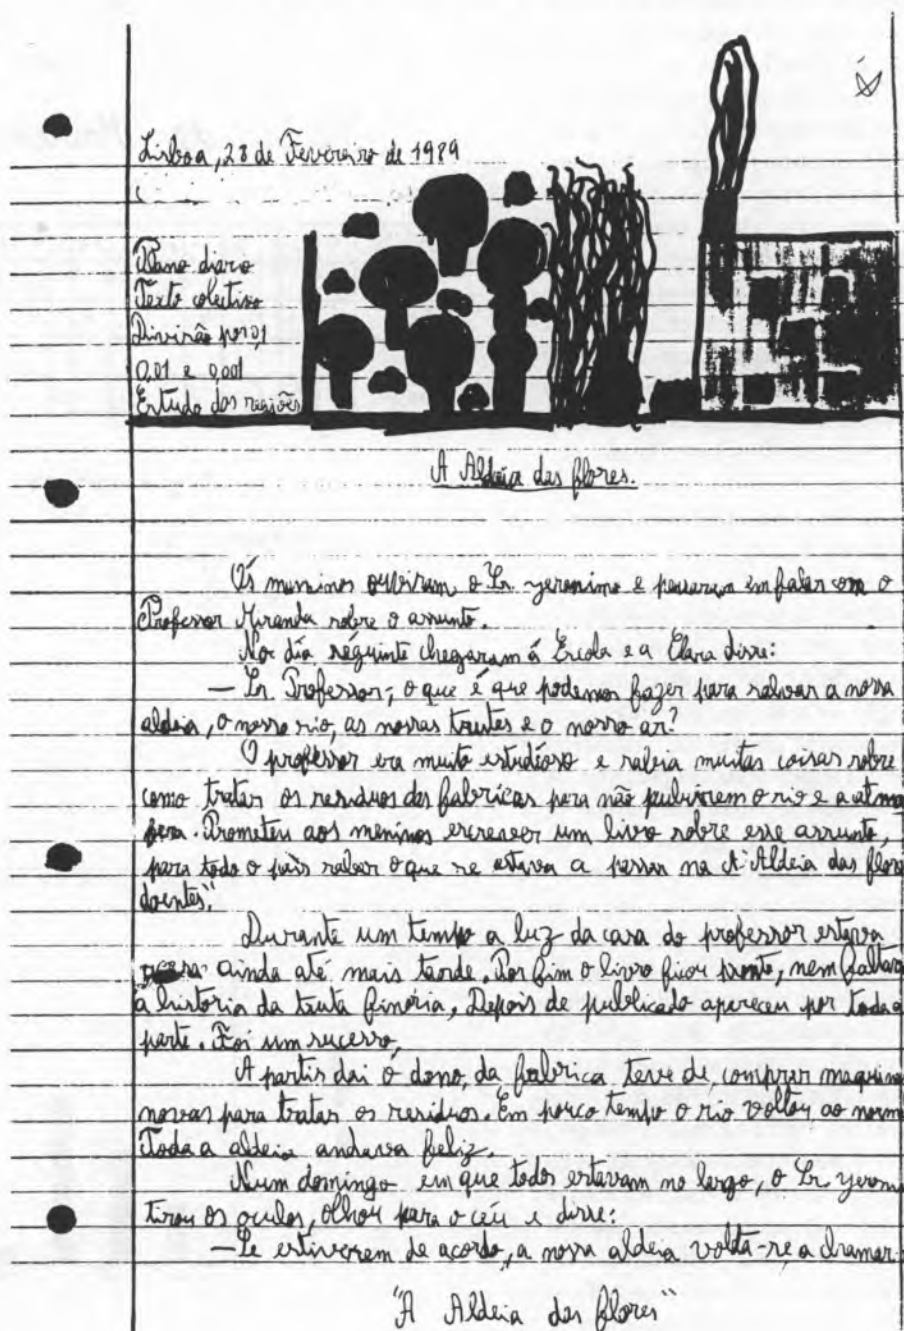 Lisboa, 28 de Fevereiro de 1989
Plano diario
Texto colectivo
Divisão por 0,1
0,01 e 0,001
Estudo das regiões
A Aldeia das flores.
Os meninos ouviram o Sr. yeronimo e pensaram em falar com o
Professor Miranda sobre o assunto.
No dia seguinte chegaram á Escola e a Clara disse:
— Sr. Professor, o que é que podemos fazer para salvar a nossa
aldeia, o nosso rio, as nossas trutes e o nosso ar?
O professor era muito estudioso e sabia muitas coisas sobre
como tratar os residuos das fabricas para não puluirem o rio e a atmos
fera. Prometeu aos meninos escrever um livro sobre esse assunto,
para todo o país saber o que se estava a passar na "A Aldeia das flore
doentes".
Durante um tempo a luz da casa do professor estava
acesa ainda até mais tarde. Por fim o livro ficou pronto, nem faltav
a historia da truta finória. Depois de publicado apereceu por toda a
parte. Foi um sucesso,
A partir dai o dono, da fabrica teve de, comprar maquina
novas para tratar os residuos. Em pouco tempo o rio voltou ao norma
Toda a aldeia andava feliz.
Num domingo em que todos estavam no largo, o Sr. yeroni
tirou os oculos, olhou para o céu e disse:
— Se estiverem de acordo, a nossa aldeia volta-se a chamar:
"A Aldeia das flores"